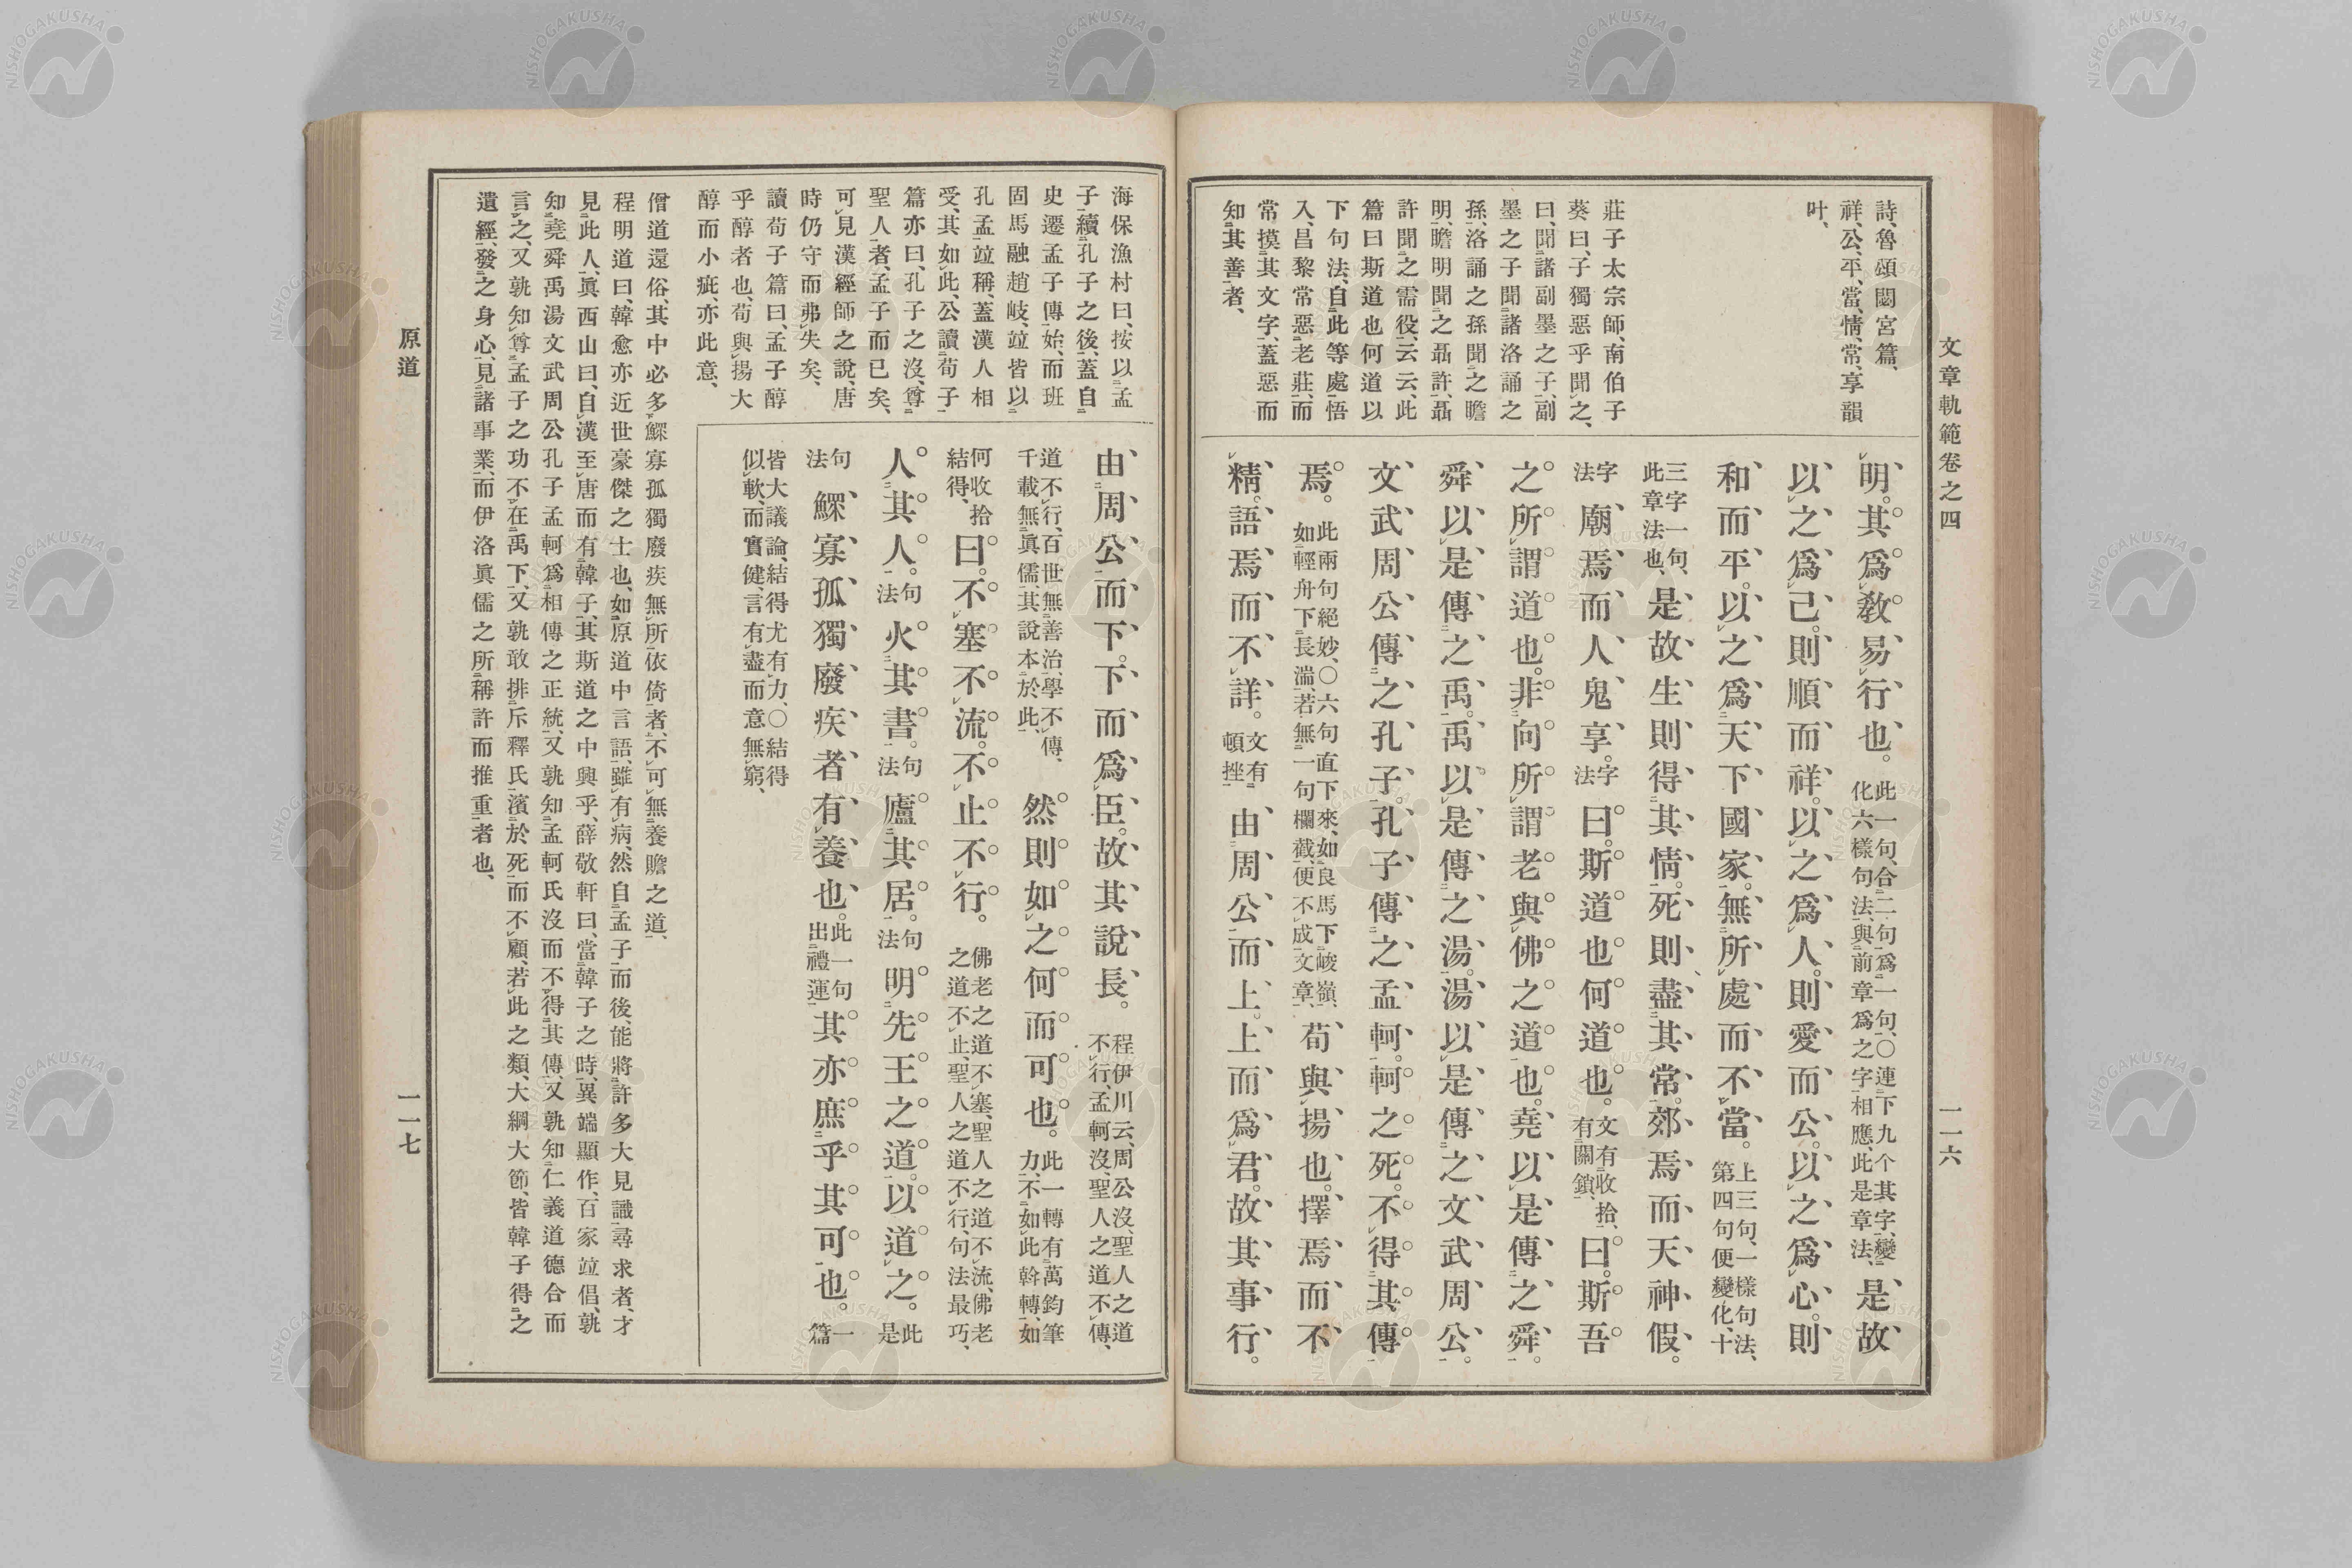 文章軌範卷之四
一一六
詩、魯頌閟宮篇、
祥、公、平、當、情、常、享韻
叶、
莊子太宗師、南伯子
葵曰、子獨惡乎聞之、
曰、聞諸副墨之子、副
墨之子聞諸洛誦之
孫、洛誦之孫聞之瞻
明、瞻明聞之聶許、聶
許聞之需役、云云、此
篇曰斯道也何道以
下句法、自此等處悟
入、昌黎常惡老莊、而
常摸其文字、蓋惡而
知其善者、
明。其爲敎易行也。此一句、合二句爲一句、〇連下九个其字、變化六樣句法、與前章爲之字相應、此是章法、是故
以之爲己。則順而祥。以之爲人。則愛而公。以之爲心。則
和而平。以之爲天下國家。無所處而不當。上三句、一樣句法、第四句便變化、十
三字一句、此章法也、是故生則得其情。死則盡其常。郊焉而天神假。
字法廟焉而人鬼享。字法曰。斯道也何道也。文有收拾、有關鎖、曰。斯吾
之所謂道也。非向所謂老與佛之道也。堯以是傳之舜。
舜以是傳之禹。禹以是傳之湯。湯以是傳之文武周公。
文武周公傳之孔子。孔子傳之孟軻。軻之死。不得其傳
焉。此兩句絕妙、〇六句直下來、如良馬下峻嶺、如輕舟下長湍、若無一句欄截、便不成文章、荀與揚也。擇焉而不
精。語焉而不詳。文有頓挫由周公而上。上而爲君。故其事行。
海保漁村曰、按以孟
子續孔子之後、蓋自
史遷孟子傳始、而班
固馬融趙岐、竝皆以
孔孟竝稱、蓋漢人相
受、其如此、公讀荀子
篇亦曰、孔子之沒、尊
聖人者、孟子而已矣、
可見漢經師之說、唐
時仍守而弗失矣、
讀荀子篇曰、孟子醇
乎醇者也、荀與揚大
醇而小疵、亦此意、
由周公而下。下而爲臣。故其說長。程伊川云、周公沒、聖人之道不行、孟軻沒、聖人之道不傳、
道不行、百世無善治、學不傳、千載無眞儒、其說本於此、然則如之何而可也。此一轉有萬鈞筆力、不如此斡轉、如
何收拾結得、曰。不塞不流。不止不行。佛老之道不塞、聖人之道不流、佛老之道不止、聖人之道不行、句法最巧、
人其人。句法火其書。句法廬其居。句法明先王之道。以道之。此是
句法鰥寡孤獨廢疾者有養也。此一句出禮運其亦庶乎其可也。一篇
皆大議論、結得尤有力、〇結得似軟、而實健、言有盡而意無窮、
僧道還俗、其中必多鰥寡孤獨廢疾無所依倚者、不可無養贍之道、
程明道曰、韓愈亦近世豪傑之士也、如原道中言語、雖有病、然自孟子而後、能將許多大見識尋求者、才
見此人、眞西山曰、自漢至唐而有韓子、其斯道之中興乎、薛敬軒曰、當韓子之時、異端顯作、百家竝倡、孰
知堯舜禹湯文武周公孔子孟軻爲相傳之正統、又孰知孟軻氏沒而不得其傳、又孰知仁義道德合而
言之、又孰知尊孟子之功不在禹下、又孰敢排斥釋氏、濱於死而不顧、若此之類、大綱大節、皆韓子得之
遺經、發之身心、見諸事業、而伊洛眞儒之所稱許而推重者也、
原道
一一七
NISHOGAKUSHA